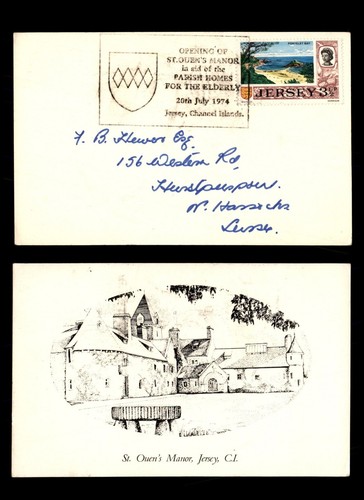 OPENING OF
ST. OUEN'S MANOR
in aid of the
PARISH HOMES
FOR THE ELDERLY
20th July 1974
Jersey, Channel Islands.
JERSEY 3½
F. B. Hewer Esq.
156 Western Rd,
Hurstpierpoint
Nr. Hassocks
Sussex.
St. Ouen's Manor, Jersey, C.I.